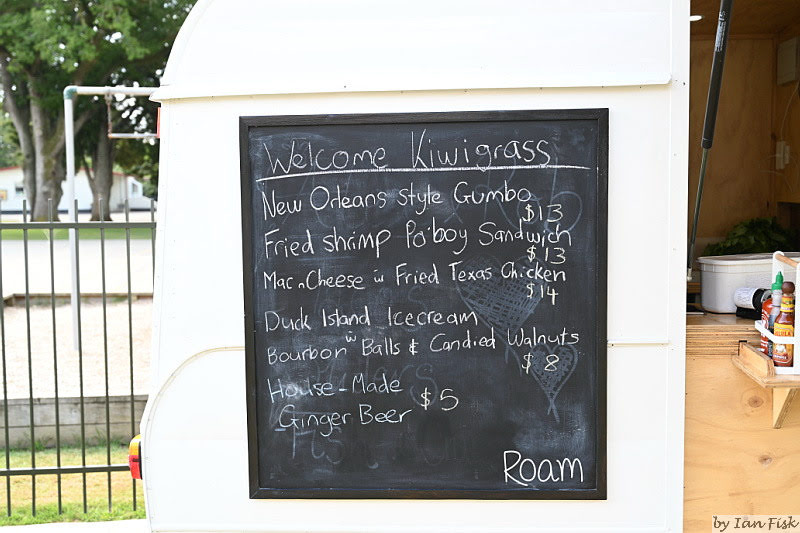 Welcome Kiwigrass
New Orleans style Gumbo
$13
Fried shrimp Po'boy Sandwich
$13
Mac n Cheese w Fried Texas Chicken
$14
Duck Island Icecream
w
Bourbon Balls & Candied Walnuts
$8
House-Made
Ginger Beer $5
Roam
by Ian Fisk